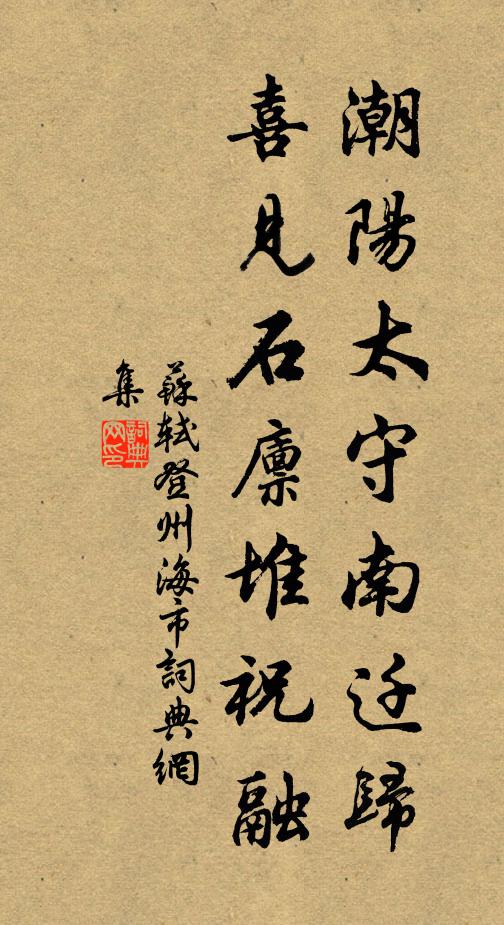 潮陽太守南迁歸
喜見石廩堆祝融
蘇軾登州海市詞典網
集
詞典
网印